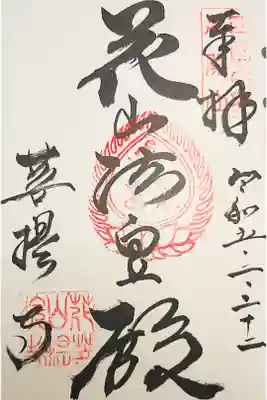 奉拝
令和五・二・二十二
花山法皇殿
菩提寺